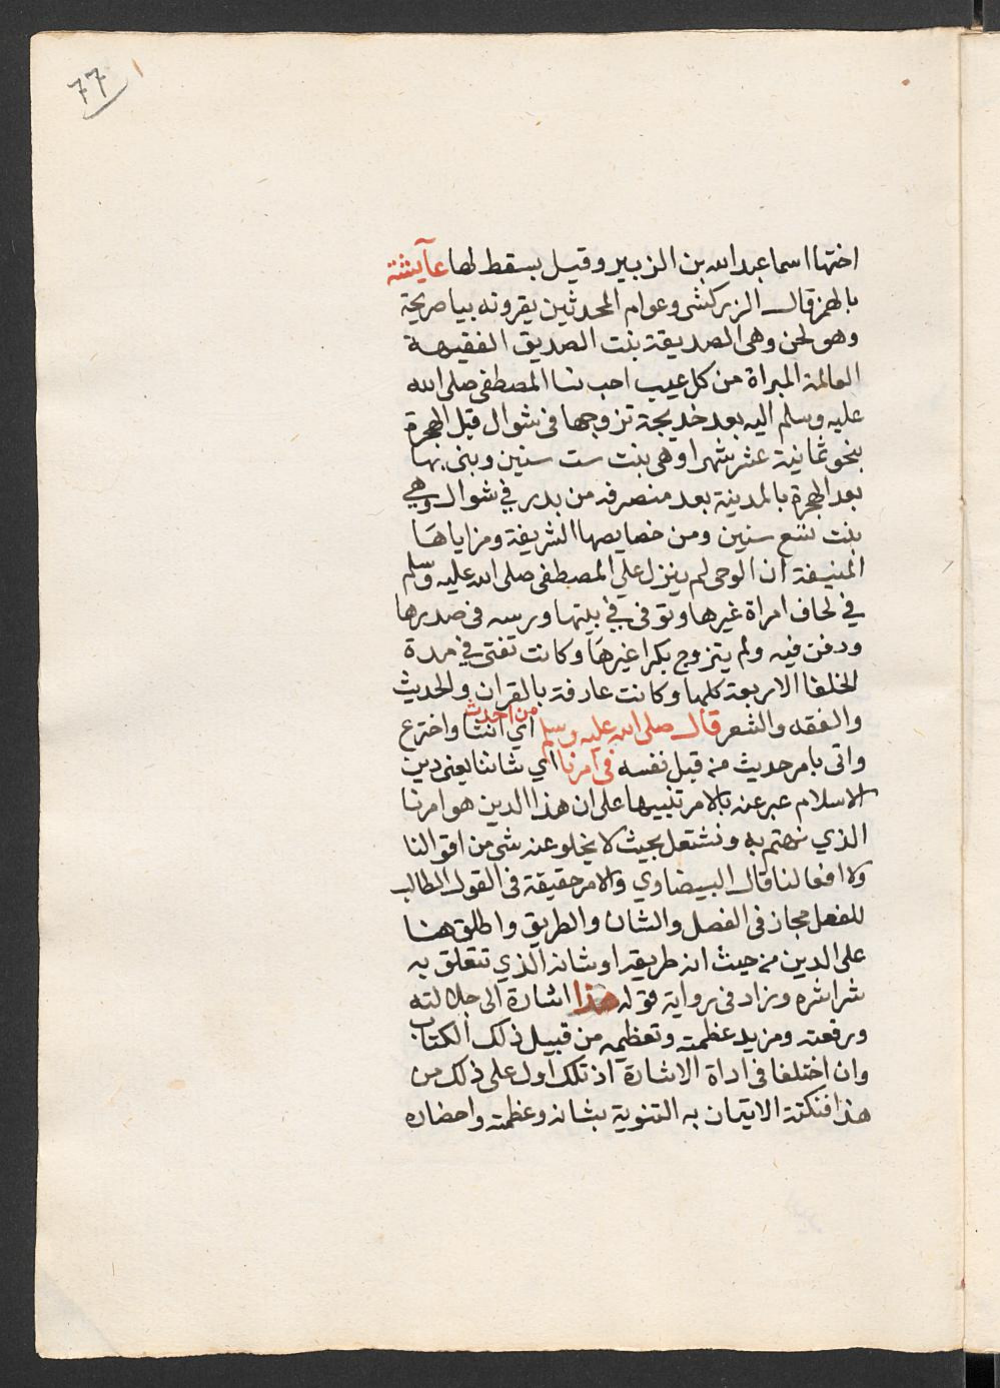 ٧٧
اختها اسما عبد الله بن الزبير وقيل بسقط لها عآيشة
بالهمز قال الزركشى وعوام المحدثين يقرونه بيا صريحة
وهو لحن وهى الصديقة بنت الصديق الفقيهة
العالمة المبراة من كل عيب احب نسا المصطفى صلى الله
عليه وسلم اليه بعد خديجة تزوجها فى شوال قبل الهجرة
بنحو ثمانية عشر شهرا وهى بنت ست سنين وبنى بها
بعد الهجرة بالمدينة بعد منصرفه من بدر في شوال وهي
بنت تسع سنين ومن خصايصها الشريفة ومزاياها
المنيفة ان الوحى لم ينزل علي المصطفى صلى الله عليه وسلم
في لحاف امراة غيرها وتوفى في بيتها ورسه فى صدرها
ودفن فيه ولم يتزوج بكرا غيرها وكانت تفتى في مدة
الخلفا الاربعة كلها وكانت عارفة بالقران والحديث
والفقه والشعر قال صلى الله عليه وسلم من احدث اي انشا واخترع
واتى بامر حديث من قبل نفسه فى امرنا اي شاننا يعنى دين
الاسلام عبر عنه بالامر تنبيها على ان هذا الدين هو امرنا
الذي نهتم به ونشتغل بحيث لا يخلو عنه شى من اقوالنا
ولا افعالنا قال البيضاوي والامر حقيقة فى القول الطالب
للفعل مجاز فى الفصل والشان والطريق واطلق هنا
على الدين من حيث انه طريقه او شانه الذي تتعلق به
شراشره وزاد فى رواية قوله هذا اشارة الى جلالته
ورفعته ومزيد عظمته وتعظيمه من قبيل ذلك الكتاب
وان اختلفا فى اداة الاشارة اذ تلك اول على ذلك من
هذا فنكتة الاتيان به التنوية بشانه وعظمته واحضاره